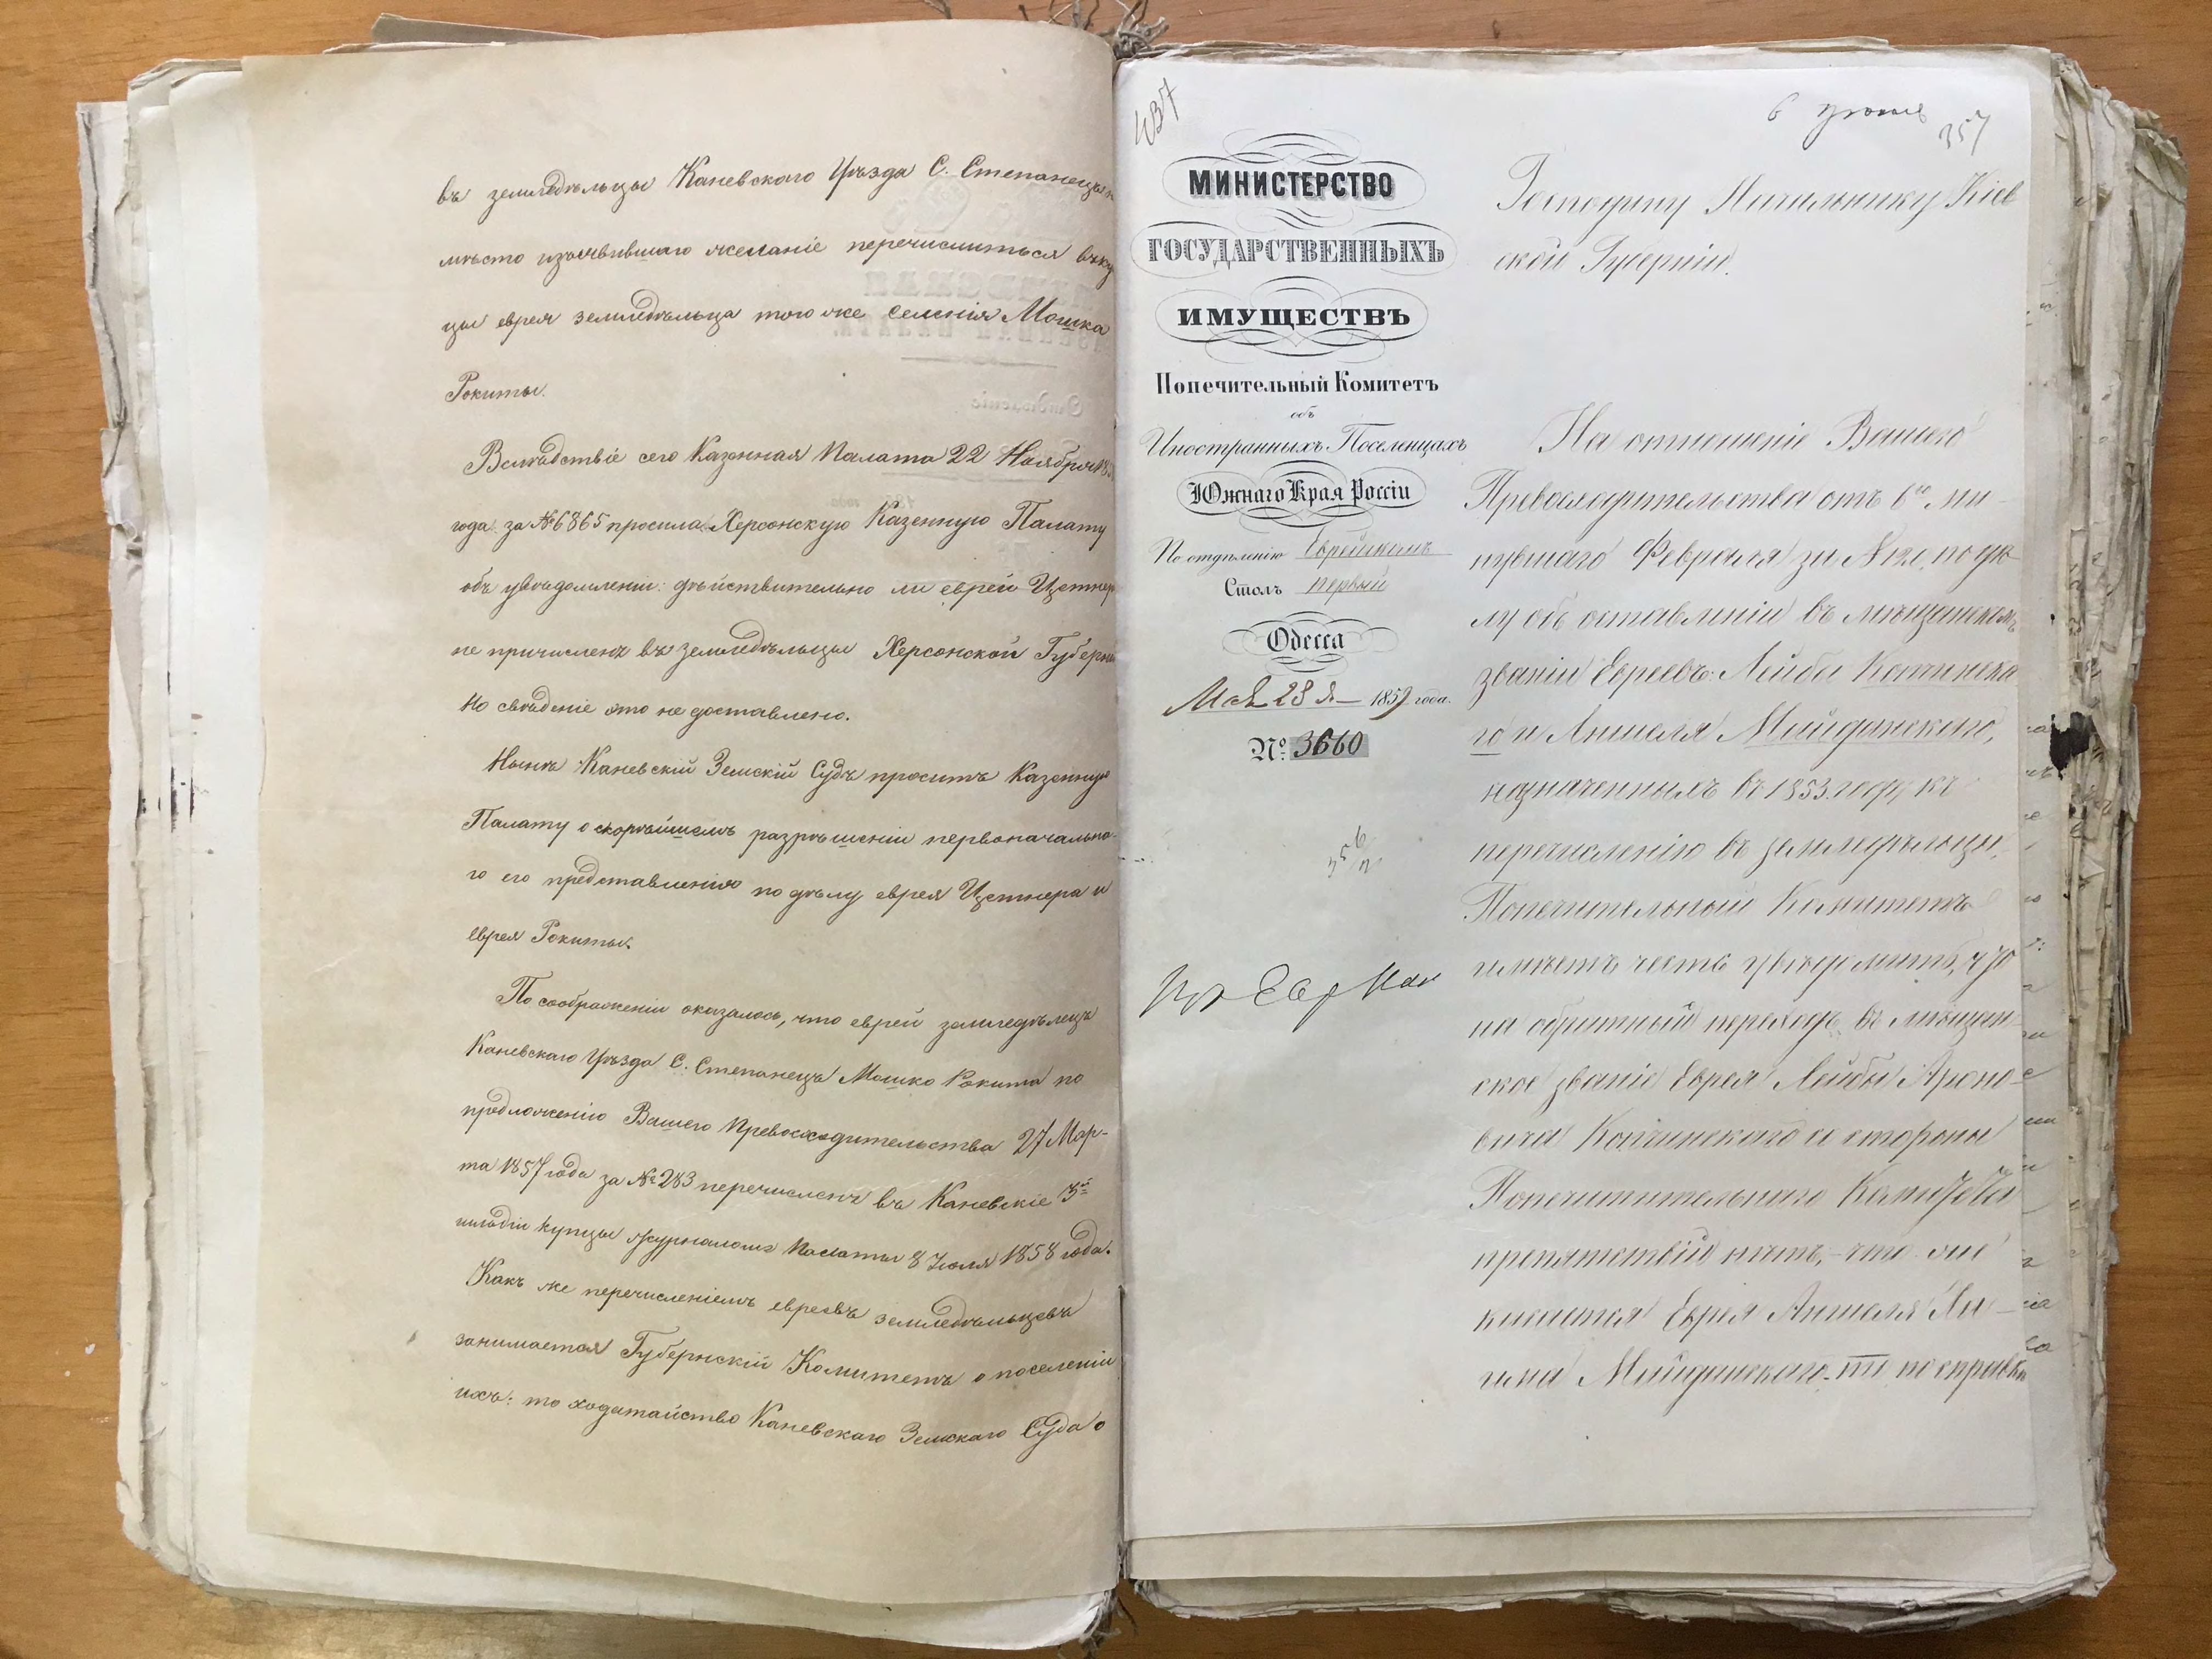 въ земледѣльцы Каневскаго Уѣзда С. Степанецъ
мѣсто изъявившаго желаніе перечислиться въ ку
цы еврея земледѣльца того же селенія Мошка
Рокиты.
Вслѣдствіе сего Казенная Палата 22 Ноября 185
года за № 6865 просила Херсонскую Казенную Палату
объ увѣдомленіи: дѣйствительно ли еврей Цетнер
не причисленъ въ земледѣльцы Херсонской Губерн
но свѣденіе это не доставлено.
Нынѣ Каневскій Земскій Судъ проситъ Казенную
Палату о скорѣйшемъ разрѣшеніи первоначально-
го его представленія по дѣлу еврея Цетнера и
еврея Рокиты.
По соображеніи оказалось, что еврей земледѣлецъ
Каневскаго Уѣзда С. Степанецъ Мошко Рокита по
предложенію Вашего Превосходительства 27 Мар-
та 1857 года за № 283 перечисленъ въ Каневскіе 3й
гильдіи купцы журналомъ Палаты 8 Іюля 1858 года.
Какъ же перечисленіемъ евреевъ земледѣльцевъ
занимается Губернскій Комитетъ о поселеніи
ихъ: то ходатайство Каневскаго Земскаго Суда о
437
6
357
МИНИСТЕРСТВО
ГОСУДАРСТВЕННЫХЪ
ИМУЩЕСТВЪ
Попечительный Комитетъ
объ
Иностранныхъ Поселенцахъ
Южнаго Края Россіи
По отдѣленію Еврейскихъ
Столъ первый
Одесса
Мая 28 я 1859 года.
№ 3660
356
2
Господину Начальнику Кіев
ской Губерніи.
На отношеніе Вашего
Превосходительства отъ 6го ми-
нувшаго Февраля за № по дѣ
лу объ оставленіи въ мѣщанскомъ
званіи Евреевъ: Лейбы Копчинска
го и Аншеля Майданскаго,
назначенныхъ въ 1853 году къ
перечисленію въ земледѣльцы,
Попечительный Комитетъ
имѣетъ честь увѣдомить, что
на обратный переходъ въ мѣщан
ское званіе Еврея Лейбы Ароно-
вича Копчинскаго со стороны
Попечительнаго Комитета
препятствій нѣтъ, что же
касается Еврея Аншеля Хи
Майданскаго, то по справкѣ